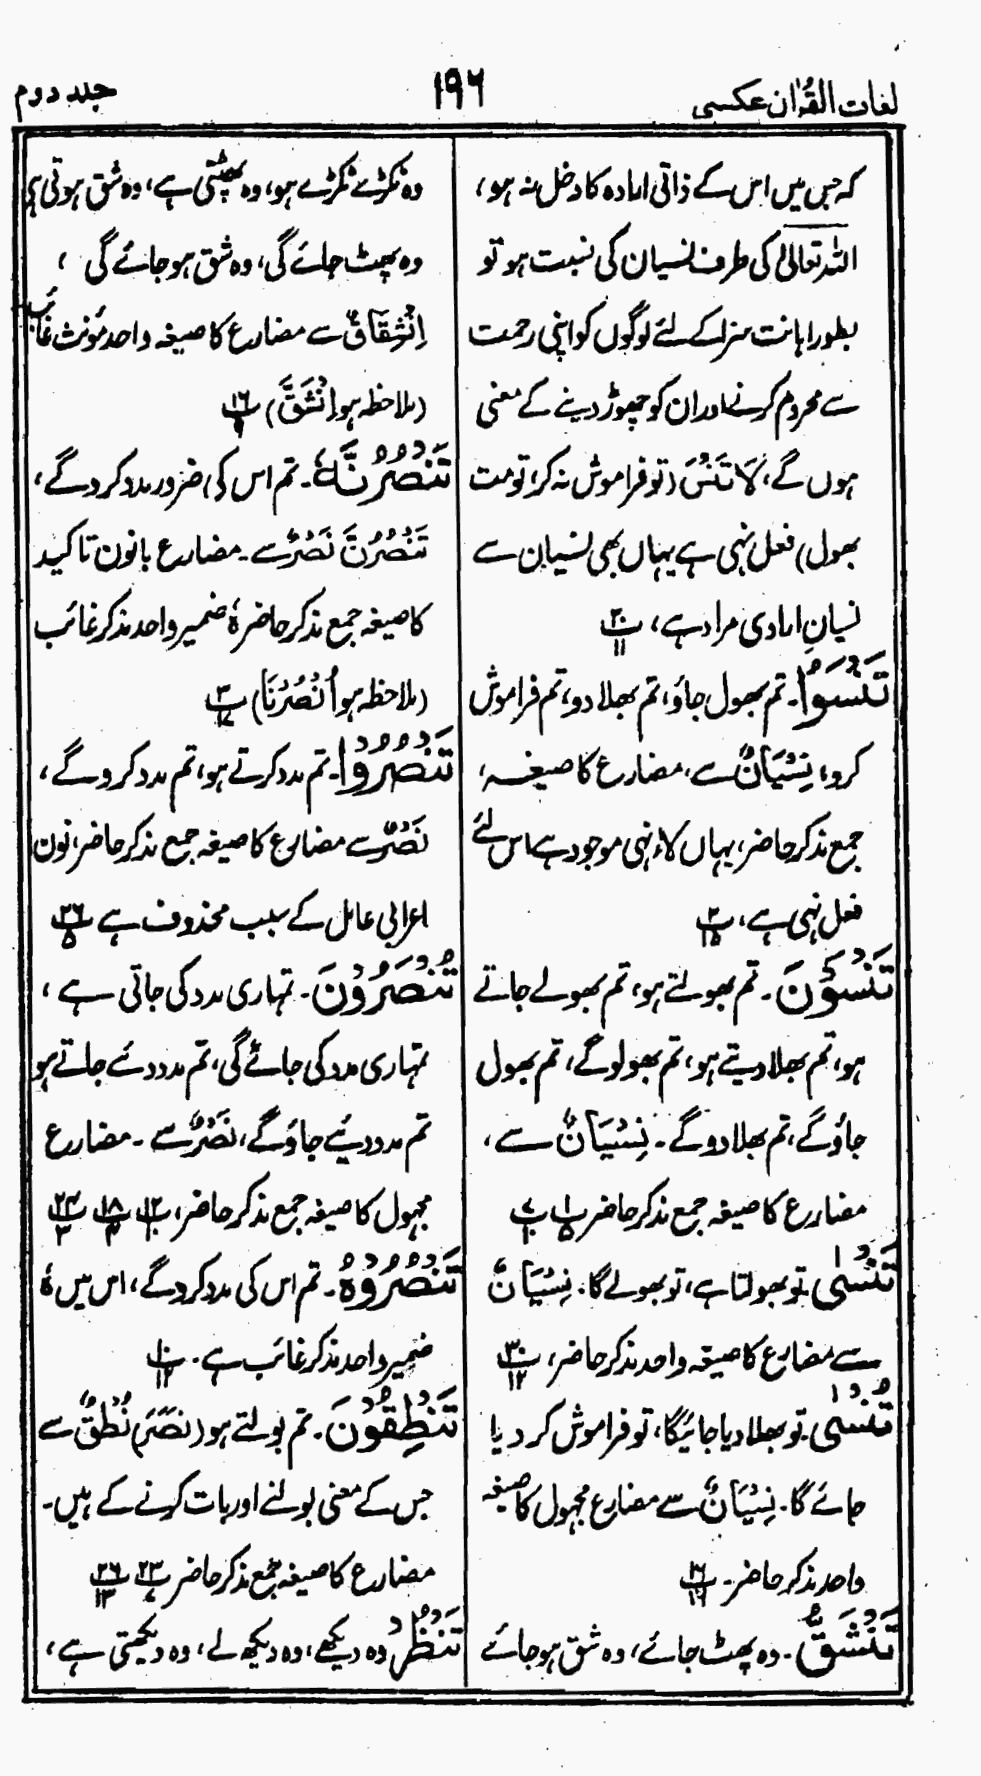 لغات القرآن عکسی
۱۹۶
جلد دوم
کہ جس میں اس کے ذاتی ارادہ کا دخل نہ ہو،
اللہ تعالیٰ کی طرف نسیان کی نسبت ہو تو
بطور اہانت سزا کے لئے لوگوں کو اپنی رحمت
سے محروم کرنے اور ان کو چھوڑ دینے کے معنی
ہوں گے، لَا تَنْسَ (تو فراموش نہ کر، تو مت
بھول) فعل نہی ہے یہاں بھی نسیان سے
نسیانِ ارادی مراد ہے، ۲۰/۱۱
تَنْسَوُا۔ تم بھول جاؤ، تم بھلا دو، تم فراموش
کرو، نِسْیَانٌ سے، مضارع کا صیغہ،
جمع مذکر حاضر، یہاں لاء نہی موجود ہے اس لئے
فعل نہی ہے، ۲/۱۵
تَنْسَوْنَ۔ تم بھولتے ہو، تم بھولے جاتے
ہو، تم بھلا دیتے ہو، تم بھولوگے، تم بھول
جاؤگے، تم بھلا دوگے۔ نِسْیَانٌ سے،
مضارع کا صیغہ جمع مذکر حاضر ۱/۵ ۷/۱۰
تَنْسٰی۔ تو بھولتا ہے، تو بھولے گا۔ نِسْیَانٌ
سے مضارع کا صیغہ واحد مذکر حاضر، ۳۰/۱۲
تُنْسٰی۔ تو بھلا دیا جائیگا، تو فراموش کر دیا
جائے گا۔ نِسْیَانٌ سے مضارع مجہول کا صیغہ
واحد مذکر حاضر۔ ۱۶/۱۶
تَنْشَقُّ۔ وہ پھٹ جائے، وہ شق ہوجائے
وہ ٹکڑے ٹکڑے ہو، وہ پھٹتی ہے، وہ شق ہوتی ہے
وہ پھٹ جائے گی، وہ شق ہوجائے گی،
اِنْشِقَاقٌ سے مضارع کا صیغہ واحد مؤنث غائب
(ملاحظہ ہو اِنْشَقَّ) ۱۶/۹
تَنْصُرُنَّہٗ۔ تم اس کی ضرور مدد کروگے،
تَنْصُرُنَّ نَصْرٌ سے۔ مضارع بانون تاکید
کا صیغہ جمع مذکر حاضر ہٗ ضمیر واحد مذکر غائب
(ملاحظہ ہو اُنْصُرْنَا) ۳/۱۷
تَنْصُرُوا۔ تم مدد کرتے ہو، تم مدد کروگے،
نَصْرٌ سے مضارع کا صیغہ جمع مذکر حاضر، نون
اعرابی عامل کے سبب محذوف ہے ۲۶/۵
تُنْصَرُوْنَ۔ تمہاری مدد کی جاتی ہے،
تمہاری مدد کی جائے گی، تم مدد دئے جاتے ہو
تم مدد دیئے جاؤگے، نَصْرٌ سے۔ مضارع
مجہول کا صیغہ جمع مذکر حاضر، ۱۲/۱۰ ۱۸/۳ ۲۴/۳
تَنْصُرُوْہُ۔ تم اس کی مدد کروگے، اس میں ہٗ
ضمیر واحد مذکر غائب ہے۔ ۱۰/۱۲
تَنْطِقُوْنَ۔ تم بولتے ہو (نَصَرَ) نُطْقٌ سے
جس کے معنی بولنے اور بات کرنے کے ہیں۔
مضارع کا صیغہ جمع مذکر حاضر ۲۳/۷ ۲۶/۱۳
تَنْظُرْ وہ دیکھے، وہ دیکھ لے، وہ دیکھتی ہے،